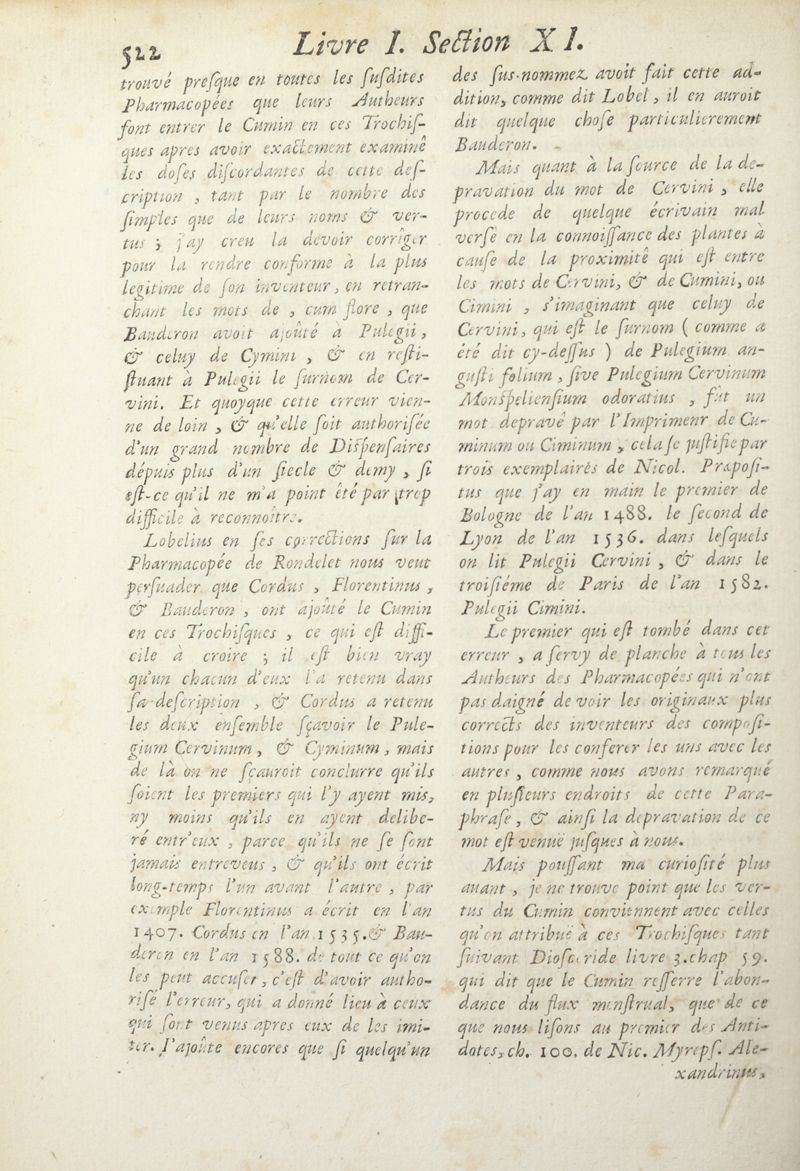 522
Livre I. Section XI.
trouvé presque en toutes les susdites
Pharmacopées que leurs Autheurs
font entrer le Cumin en ces Trochis-
ques apres avoir exactement examiné
les doses discordantes de cette des-
cription , tant par le nombre des
simples que de leurs noms & ver-
tus ; j'ay creu la devoir corriger
pour la rendre conforme à la plus
legitime de son inventeur, en retran-
chant les mots de , cum flore , que
Bauderon avoit ajoûté à Pulegii,
& celuy de Cymini , & en resti-
stuant à Pulegii le surnom de Cer-
vini. Et quoyque cette erreur vien-
ne de loin , & qu'elle soit authorisée
d'un grand nombre de Dispensaires
dépuis plus d'un siecle & demy , si
est-ce qu'il ne m'a point été par trop
difficile à reconnoître.
Lobelius en ses corrections sur la
Pharmacopée de Rondelet nous veut
persuader que Cordus , Florentinus ,
& Bauderon , ont ajoûté le Cumin
en ces Trochisques , ce qui est diffi-
cile à croire ; il est bien vray
qu'un chacun d'eux l'a retenu dans
sa description , & Cordus a retenu
les deux ensemble sçavoir le Pule-
gium Cervinum , & Cyminum , mais
de là on ne sçauroit conclurre qu'ils
soient les premiers qui l'y ayent mis,
ny moins qu'ils en ayent delibe-
ré entr'eux , parce qu'ils ne se sont
jamais entreveus , & qu'ils ont écrit
long-temps l'un avant l'autre , par
exemple Florentinus a écrit en l'an
1407. Cordus en l'an 1535. & Bau-
deron en l'an 1588. de tout ce qu'on
les peut accuser, c'est d'avoir autho-
risé l'erreur, qui a donné lieu à ceux
qui sont venus apres eux de les imi-
ter. J'ajoûte encores que si quelqu'un
des sus-nommez avoit fait cette ad-
dition, comme dit Lobel , il en auroit
dit quelque chose particulierement
Bauderon.
Mais quant à la source de la de-
pravation du mot de Cervini , elle
procede de quelque écrivain mal
versé en la connoissance des plantes à
cause de la proximité qui est entre
les mots de Cervini, & de Cumini, ou
Cimini , s'imaginant que celuy de
Cervini, qui est le surnom ( comme a
été dit cy-dessus ) de Pulegium an-
gusti folium , sive Pulegium Cervinum
Monspeliensium odoratius , fût un
mot depravé par l'Imprimeur de Cu-
minum ou Ciminum , cela se justifie par
trois exemplairès de Nicol. Præposi-
tus que j'ay en main le premier de
Bologne de l'an 1488. le second de
Lyon de l'an 1536. dans lesquels
on lit Pulegii Cervini , & dans le
troisiéme de Paris de l'an 1582.
Pulegii Cimini.
Le premier qui est tombé dans cet
erreur , a servy de planche à tous les
Autheurs des Pharmacopées qui n'ont
pas daigné de voir les originaux plus
corrects des inventeurs des composi-
tions pour les conferer les uns avec les
autres , comme nous avons remarqué
en plusieurs endroits de cette Para-
phrase , & ainsi la depravation de ce
mot est venuë jusques à nous.
Mais poussant ma curiosité plus
auant , je ne trouve point que les ver-
tus du Cumin conviennent avec celles
qu'on attribue à ces Trochisques tant
suivant Dioscoride livre 3. chap 59.
qui dit que le Cumin resserre l'abon-
dance du flux menstrual, que de ce
que nous lisons au premier des Anti-
dotes, ch. 100. de Nic. Myreps. Ale-
xandrinus,